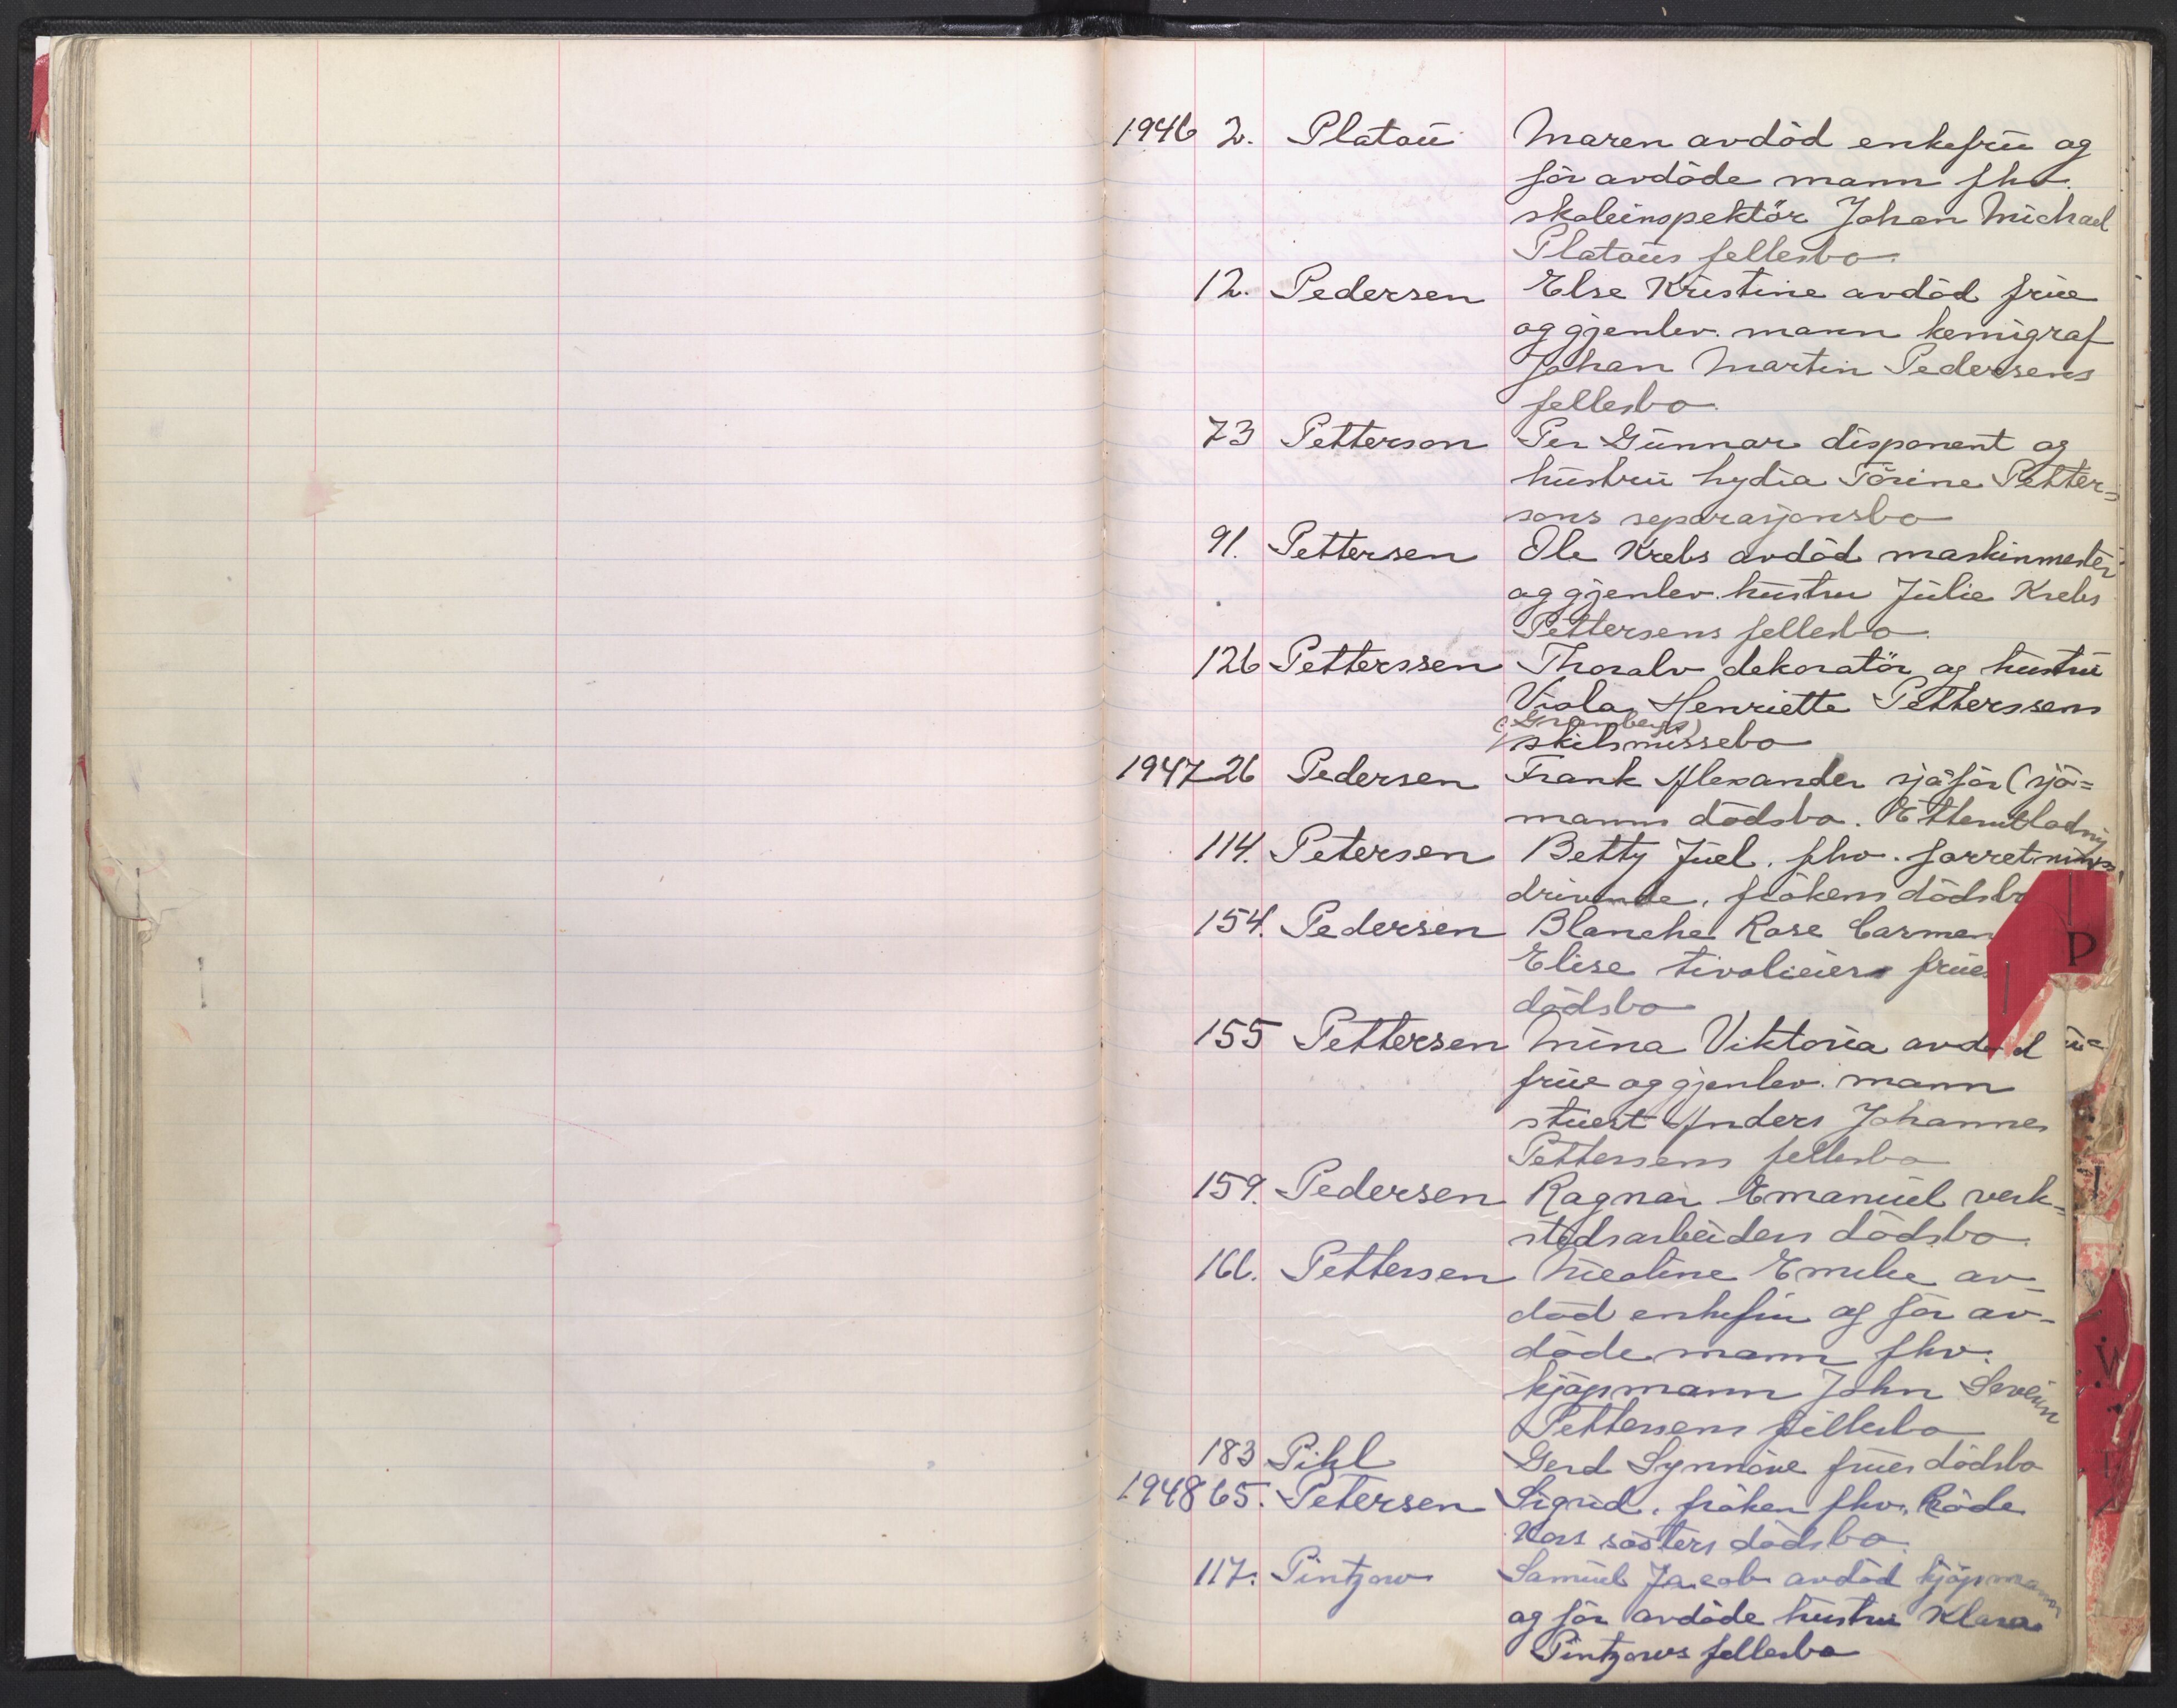 1946 2. Platou Maren avdöd enkefru og
för avdöde mann fhv.
skoleinspektör Johan Michael
Platous fellesbo.
12. Pedersen Else Kristine avdöd frue
og gjenlev. mann kemigraf
Johan Martin Pedersens
fellesbo
73 Petterson Per Gunnar disponent og
hustru Lydia Törine Petter=
sons separasjonsbo
91. Pettersen Ole Krebs avdöd maskinmester
og gjenlev. hustru Julie Krebs
Pettersens fellesbo.
126 Petterssen Thoralv dekoratör og hustru
Viola Henriette Petterssens
skilsmissebo
1947 26 Pedersen Frank Alexander sjåför (sjö=
manns dödsbo. Etterutlodning
114. Petersen Betty Juel. fhv. forretnings
drivende, frökens dödsbo
154. Pedersen Blanche Rose Carmen
Elise tivolieiers frues
dödsbo
155 Pettersen Mina Viktoria avdöd
frue og gjenlev. mann
stuert Anders Johannes
Pettersens fellesbo
159. Pedersen Ragnar Emanuel verk=
stedsarbeiders dödsbo.
166. Pettersen Nicoline Emilie av
död enkefru og för av-
döde mann fhv.
kjöpmann John Severin
Pettersens fellesbo
183 Pihl Gerd Synnöve frues dödsbo
1948 65. Petersen Sigrid, fröken fhv. Röde
Kors sösters dödsbo.
117. Pintzow Samuel Jacob avdöd kjöpmann
og för avdöde hustru Klara
Pintzows fellesbo
P
W